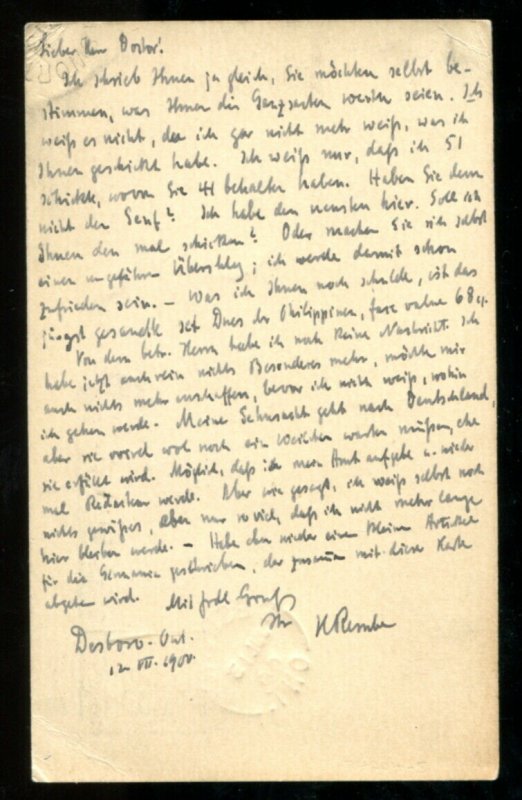 Lieber Herr Doctor!
Ich schrieb Ihnen ja gleich, Sie möchten selbst be-
stimmen, was Ihnen die Ganzsachen werth seien. Ich
weiß es nicht, da ich gar nicht mehr weiß, was ich
Ihnen geschickt habe. Ich weiß nur, daß ich 51
schickte, wovon Sie 41 behalten haben. Haben Sie denn
nicht den Senf? Ich habe den neuesten hier. Soll ich
Ihnen den mal schicken? Oder machen Sie sich selbst
einen ungefähren Überschlag; ich werde damit schon
zufrieden sein. — Was ich Ihnen noch schulde, ist das
jüngst gesandte Set Dues der Philippinen, face value 68
Von dem betr. Herrn habe ich noch keine Nachricht. Ich
habe jetzt auch rein nichts Besonderes mehr, möchte mir
auch nichts mehr anschaffen, bevor ich nicht weiß, wohin
ich gehen werde. Meine Sehnsucht geht nach Deutschland,
aber sie wird wol noch ein Weilchen warten müssen, ehe
sie erfüllt wird. Möglich, daß ich mein Amt aufgebe u. wieder
mal Redakteur werde. Aber wie gesagt, ich weiß selbst noch
nichts gewisses, eben nur so viel, daß ich nicht mehr lange
hier bleiben werde. — Habe eben wieder einen kleinen Artikel
für die Germania geschrieben, der zusammen mit dieser Karte
abgehen wird.
Mit frdl Gruß
Ihr
Desboro. Ont.
12 VII. 1900.